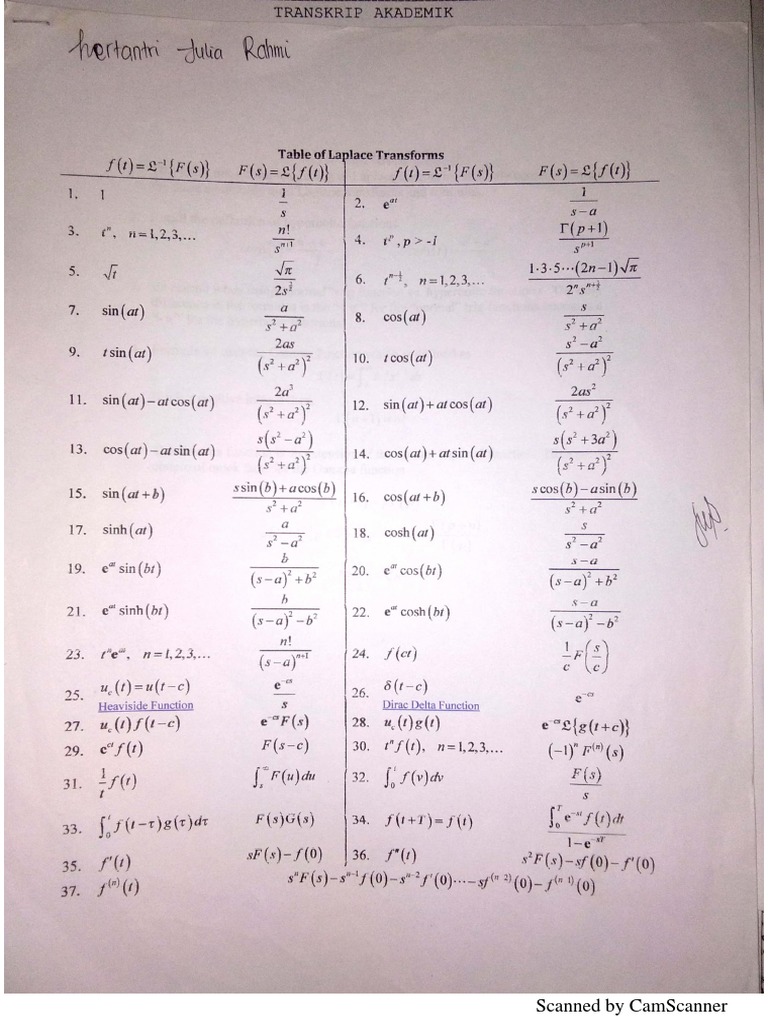 TRANSKRIP AKADEMIK
hertantri Julia Rahmi
Table of Laplace Transforms
f(t) = £⁻¹{F(s)} F(s) = £{f(t)} f(t) = £⁻¹{F(s)} F(s) = £{f(t)}
1. 1 1/s 2. e^(at) 1/(s-a)
3. tⁿ, n = 1,2,3,... n!/s^(n+1) 4. t^p, p > -1 Γ(p+1)/s^(p+1)
5. √t √π/(2s^(3/2)) 6. t^(n-1/2), n = 1,2,3,... 1·3·5···(2n-1)√π/(2ⁿs^(n+1/2))
7. sin(at) a/(s²+a²) 8. cos(at) s/(s²+a²)
9. t sin(at) 2as/(s²+a²)² 10. t cos(at) (s²-a²)/(s²+a²)²
11. sin(at)-at cos(at) 2a³/(s²+a²)² 12. sin(at)+at cos(at) 2as²/(s²+a²)²
13. cos(at)-at sin(at) s(s²-a²)/(s²+a²)² 14. cos(at)+at sin(at) s(s²+3a²)/(s²+a²)²
15. sin(at+b) (s sin(b)+a cos(b))/(s²+a²) 16. cos(at+b) (s cos(b)-a sin(b))/(s²+a²)
17. sinh(at) a/(s²-a²) 18. cosh(at) s/(s²-a²)
19. e^(at) sin(bt) b/((s-a)²+b²) 20. e^(at) cos(bt) (s-a)/((s-a)²+b²)
21. e^(at) sinh(bt) b/((s-a)²-b²) 22. e^(at) cosh(bt) (s-a)/((s-a)²-b²)
23. tⁿe^(at), n = 1,2,3,... n!/(s-a)^(n+1) 24. f(ct) (1/c)F(s/c)
25. u_c(t) = u(t-c) e^(-cs)/s 26. δ(t-c) e^(-cs)
Heaviside Function Dirac Delta Function
27. u_c(t) f(t-c) e^(-cs)F(s) 28. u_c(t) g(t) e^(-cs)£{g(t+c)}
29. e^(ct) f(t) F(s-c) 30. tⁿ f(t), n = 1,2,3,... (-1)ⁿ F^(n)(s)
31. (1/t) f(t) ∫_s^∞ F(u)du 32. ∫_0^t f(v)dv F(s)/s
33. ∫_0^t f(t-τ)g(τ)dτ F(s)G(s) 34. f(t+T) = f(t) ∫_0^T e^(-st) f(t)dt/(1-e^(-sT))
35. f'(t) sF(s)-f(0) 36. f''(t) s²F(s)-sf(0)-f'(0)
37. f^(n)(t) sⁿF(s)-s^(n-1)f(0)-s^(n-2)f'(0)···-sf^(n-2)(0)-f^(n-1)(0)
Scanned by CamScanner